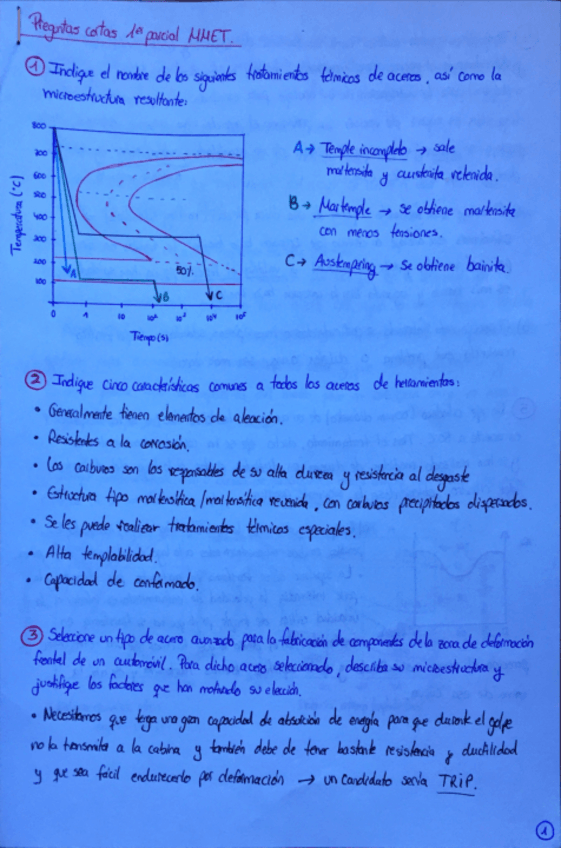 Preguntas cortas 1er parcial MMET.
① Indique el nombre de los siguientes tratamientos térmicos de aceros, así como la
microestructura resultante:
800
700
600
500
400
300
200
100
Temperatura (°C)
A
B
C
50%
0 1 10 10² 10³ 10⁴ 10⁵
Tiempo (s)
A → Temple incompleto → sale
martensita y austenita retenida.
B → Martemple → se obtiene martensita
con menos tensiones.
C → Austempering → se obtiene bainita.
② Indique cinco características comunes a todos los aceros de herramientas:
• Generalmente tienen elementos de aleación.
• Resistentes a la corrosión.
• Los carburos son los responsables de su alta dureza y resistencia al desgaste
• Estructura tipo martensítica / martensítica revenida, con carburos precipitados dispersados.
• Se les puede realizar tratamientos térmicos especiales.
• Alta templabilidad.
• Capacidad de conformado.
③ Seleccione un tipo de acero avanzado para la fabricación de componentes de la zona de deformación
frontal de un automóvil. Para dicho acero seleccionado, describa su microestructura y
justifique los factores que han motivado su elección.
• Necesitamos que tenga una gran capacidad de absorción de energía para que durante el golpe
no la transmita a la cabina y también debe de tener bastante resistencia y ductilidad
y que sea fácil endurecerlo por deformación → un candidato sería TRIP.
1